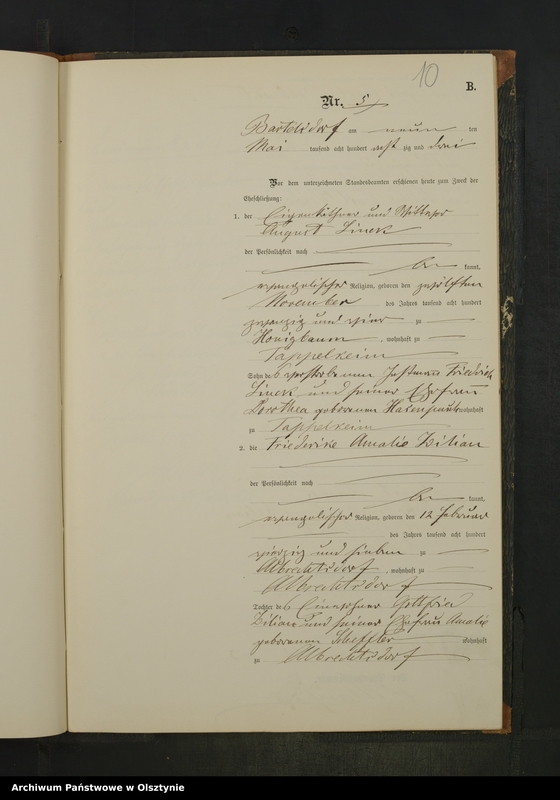 10
B.
Nr. 5
Bartelsdorf am neun ten
Mai tausend acht hundert acht zig und drei
Vor dem unterzeichneten Standesbeamten erschienen heute zum Zweck der
Eheschließung:
1. der Eigenkäthner und Wittwer
August Linck
der Persönlichkeit nach
be kannt,
evangelischer Religion, geboren den zwölften
November des Jahres tausend acht hundert
zwanzig und vier zu
Honigbaum, wohnhaft zu
Tappelkeim
Sohn des verstorbenen Instmann Friedrich
Linck und seiner Ehefrau
Dorothea geborenen wohnhaft
zu Tappelkeim
2. die Friederike Amalie Zilian
der Persönlichkeit nach
be kannt,
evangelischer Religion, geboren den 12 Februar
des Jahres tausend acht hundert
vierzig und sieben zu
Albrechtsdorf, wohnhaft zu
Albrechtsdorf
Tochter des Einwohner Gottfried
Zilian und seiner Ehefrau Amalie
geborenen Scheffler wohnhaft
zu Albrechtsdorf
Archiwum Państwowe w Olsztynie